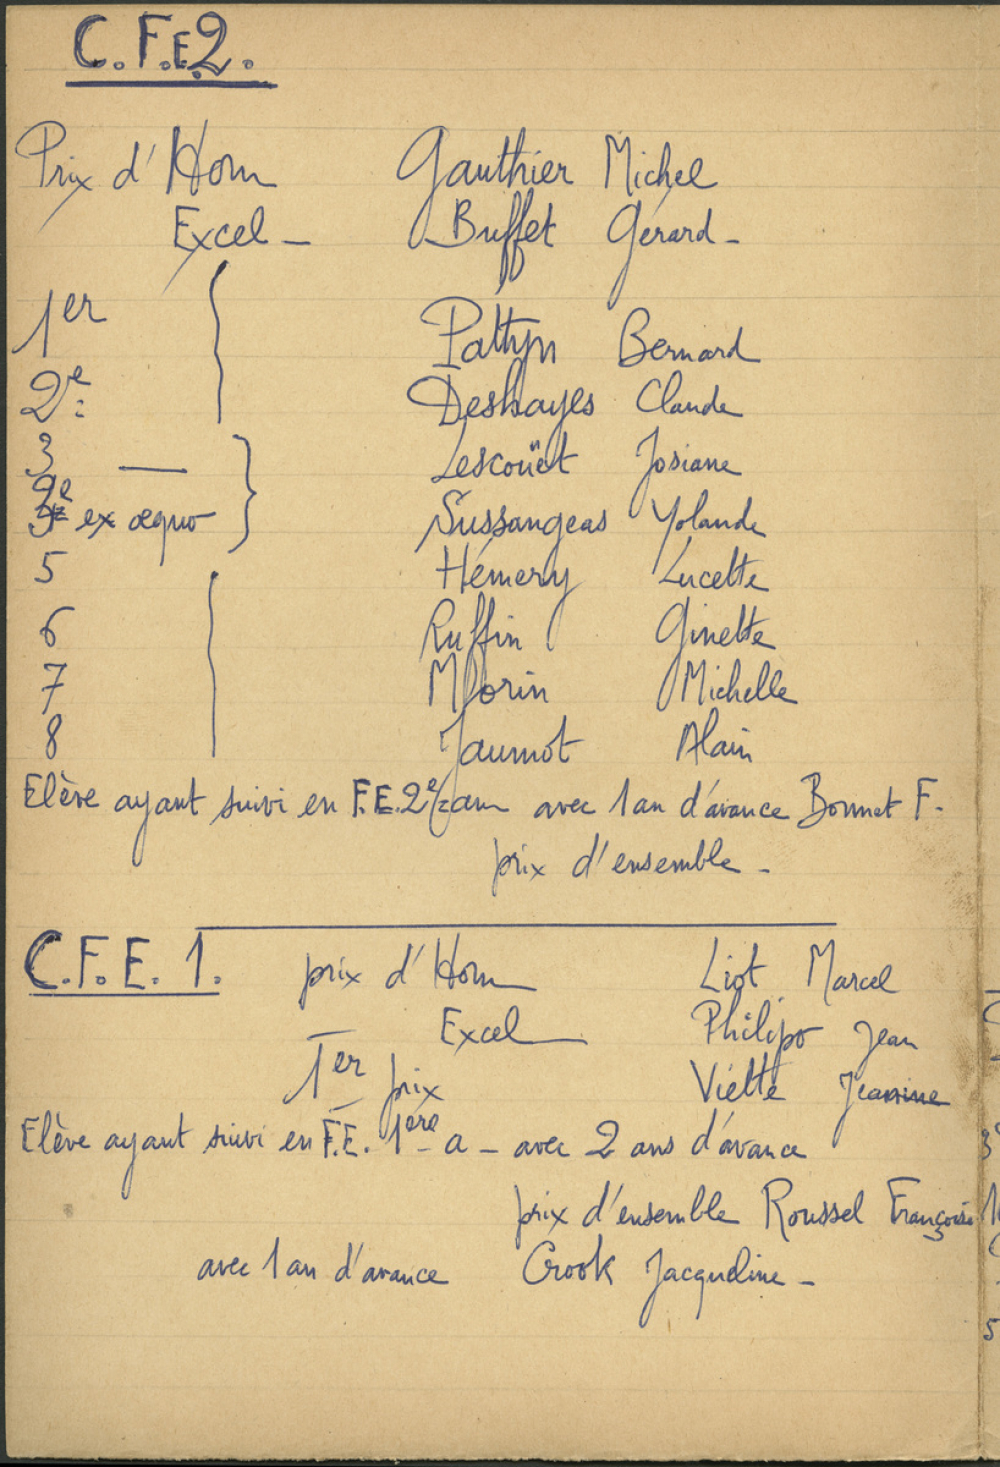 C.F.E.2.
Prix d'Hon Gauthier Michel
Excel - Buffet Gérard -
1er Pattyn Bernard
2e Deshayes Claude
3 — Lescouët Josiane
ex æquo Sussangeas Yolande
5 Hémery Lucette
6 Ruffin Ginette
7 Morin Michelle
8 Jaumot Alain
Elève ayant suivi en F.E.2e an avec 1 an d'avance Bonnet F.
prix d'ensemble -
C.F.E. 1. prix d'Hon Liot Marcel
Excel Philippo Jean
1er prix Viette Jeannine
Elève ayant suivi en F.E. 1ère a - avec 2 ans d'avance
prix d'ensemble Roussel Françoise
avec 1 an d'avance Crook Jacqueline -